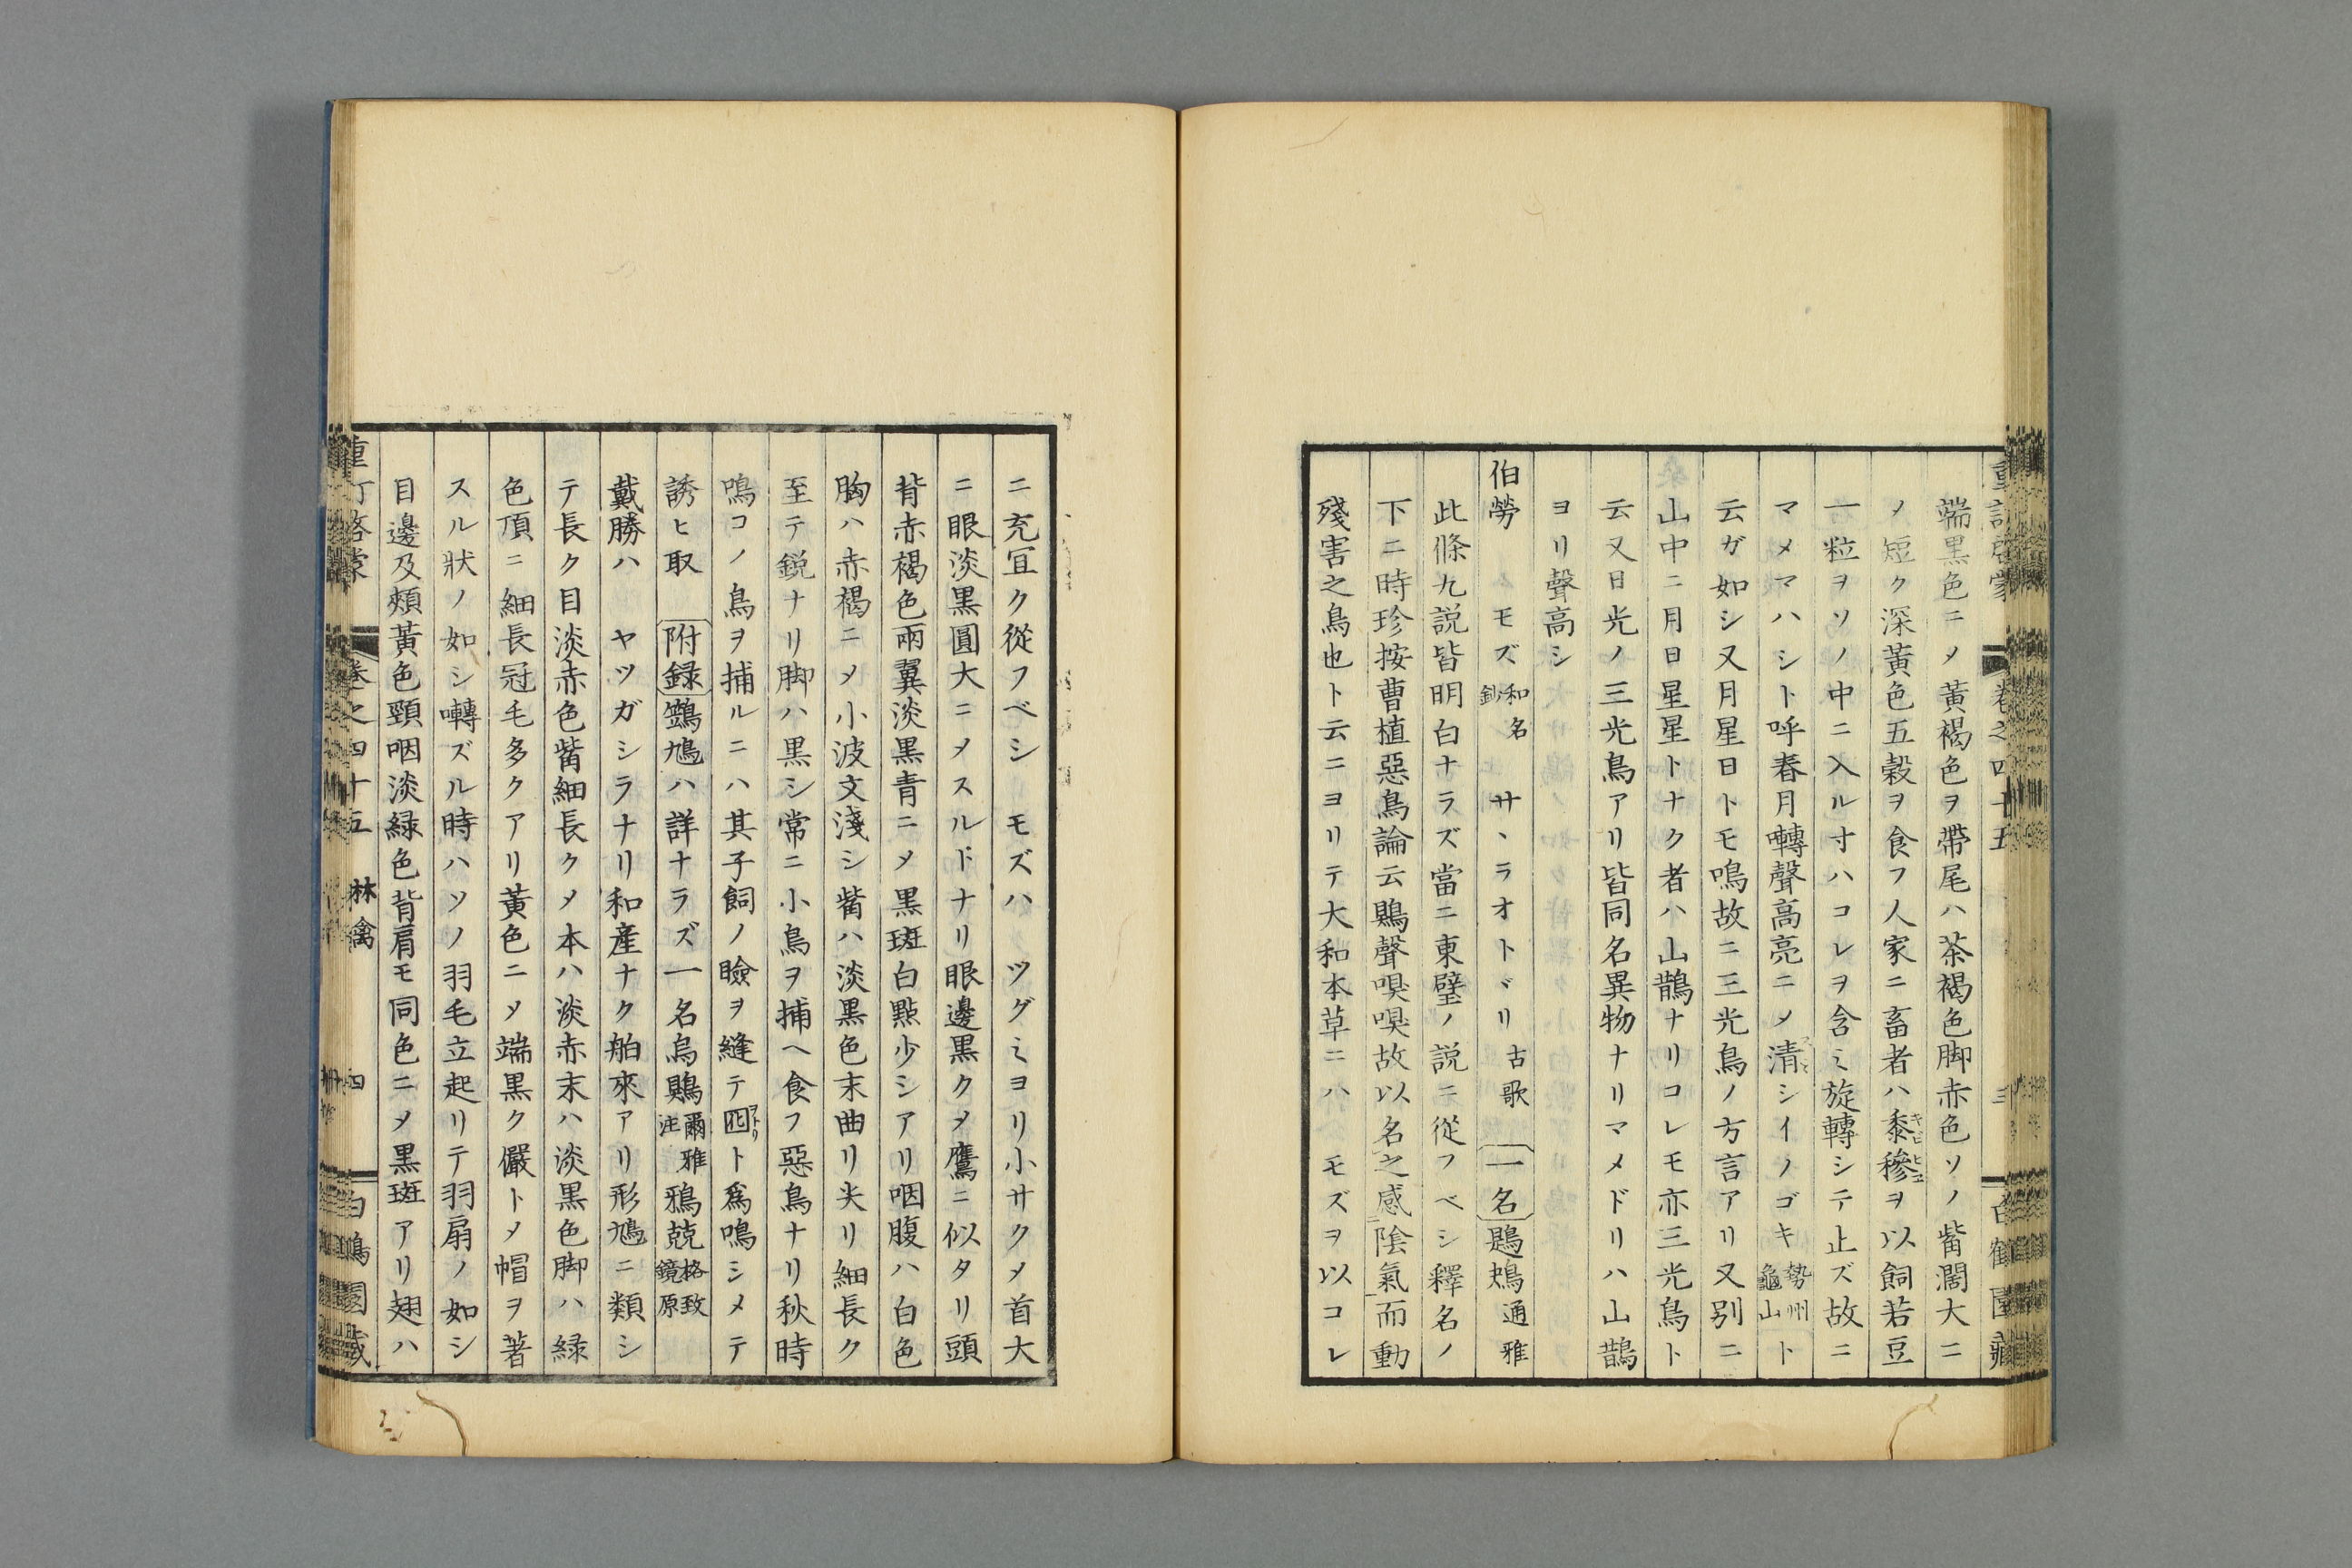 端黒色ニメ黃褐色ヲ帶尾ハ茶褐色脚赤色ソノ觜濶大ニ
ノ短ク深黃色五穀ヲ食フ人家ニ畜者ハ黍キビ穇ヒエヲ以飼若豆
一粒ヲソノ中ニ入ル寸ハコレヲ含ミ旋轉シテ止ズ故ニ
マメマハシト呼春月囀聲高亮ニメ清シイノゴキ勢州龜山ト
云ガ如シ又月星日トモ鳴故ニ三光鳥ノ方言アリ又別ニ
山中ニ月日星星トナク者ハ山鵲ナリコレモ亦三光鳥ト
云又日光ノ三光鳥アリ皆同名異物ナリマメドリハ山鵲
ヨリ聲高シ
伯勞 モズ和名鈔 サヽラオトヾリ古歌 一名鶗鴂通雅
此條九説皆明白ナラズ當ニ東璧ノ説ニ從フベシ釋名ノ
下ニ時珍按曹植惡鳥論云鵙聲嗅嗅故以名之感陰氣而動
殘害之鳥也ト云ニヨリテ大和本草ニハモズヲ以コレ
重訂啓蒙 卷之四十五 三 白鶴園藏
ニ充宜ク從フベシ モズハ ツグミヨリ小サクメ首大
ニ眼淡黒圓大ニメスルドナリ眼邊黒クメ鷹ニ似タリ頭
背赤褐色兩翼淡黒青ニメ黒斑白點少シアリ咽腹ハ白色
胸ハ赤褐ニメ小波文淺シ觜ハ淡黒色末曲リ尖リ細長ク
至テ鋭ナリ脚ハ黒シ常ニ小鳥ヲ捕ヘ食フ惡鳥ナリ秋時
鳴コノ鳥ヲ捕ルニハ其子飼ノ瞼ヲ縫テ囮ヲトリト爲鳴シメテ
誘ヒ取 附録 鸐鳩ハ詳ナラズ一名烏鵙爾雅注鴉兢格致鏡原
戴勝ハ ヤツガシラナリ和產ナク舶來アリ形鳩ニ類シ
テ長ク目淡赤色觜細長クメ本ハ淡赤末ハ淡黒色脚ハ緑
色頂ニ細長冠毛多クアリ黃色ニメ端黒ク儼トメ帽ヲ著
スル狀ノ如シ囀ズル時ハソノ羽毛立起リテ羽扇ノ如シ
目邊及頰黃色頸咽淡緑色背肩モ同色ニメ黒斑アリ翅ハ
重訂啓蒙 卷之四十五 林禽 四 白鶴園藏